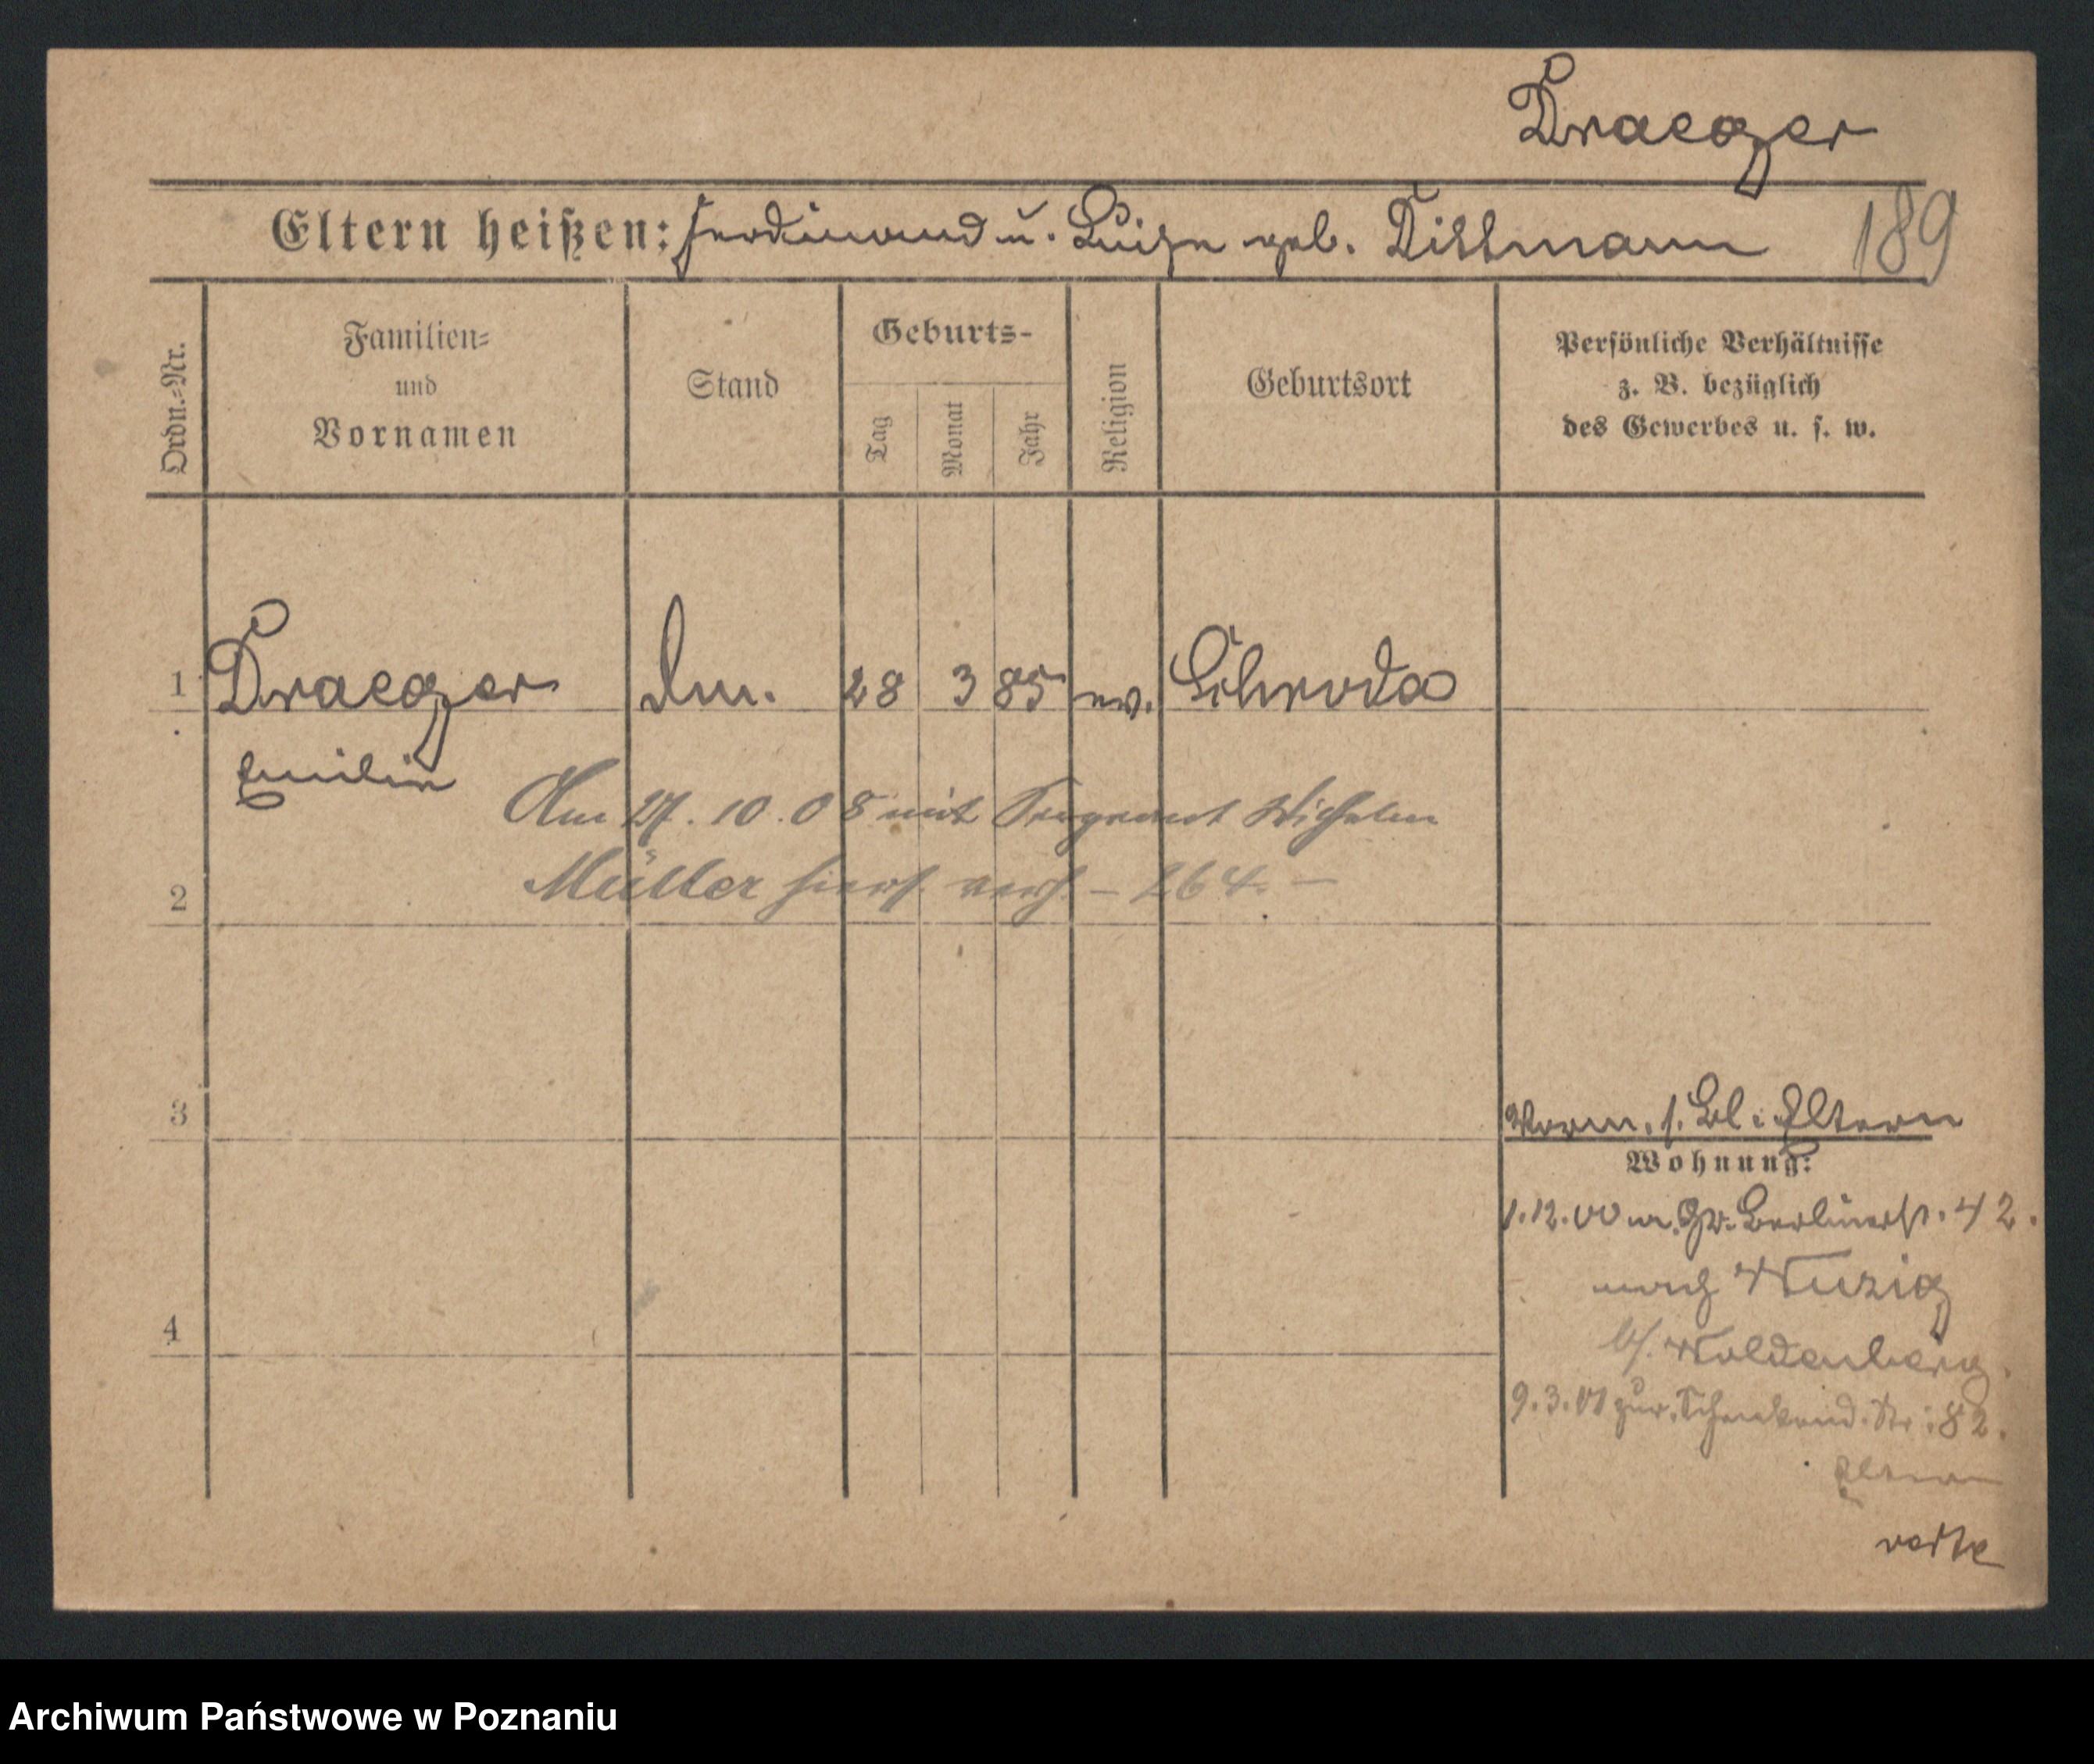 Draeger
Eltern heißen: Ferdinand u. Luise geb. Dittmann 189
Ordn.-Nr. Familien- und Vornamen Stand Geburts- Tag Monat Jahr Religion Geburtsort Persönliche Verhältnisse z. B. bezüglich des Gewerbes u. s. w.
1 Draeger 28 3 85 ev. Schroda
Emilie
Am 27. 10. 08 mit Sergeant Wilhelm
2 Müller hiers. verh. – 264. –
3
Vorm. s. Bl: Eltern
Wohnung:
1.12.00 Berlinerst. 42.
4
nach Wuzig
b/. Woldenberg.
9.3.01 82.
Eltern